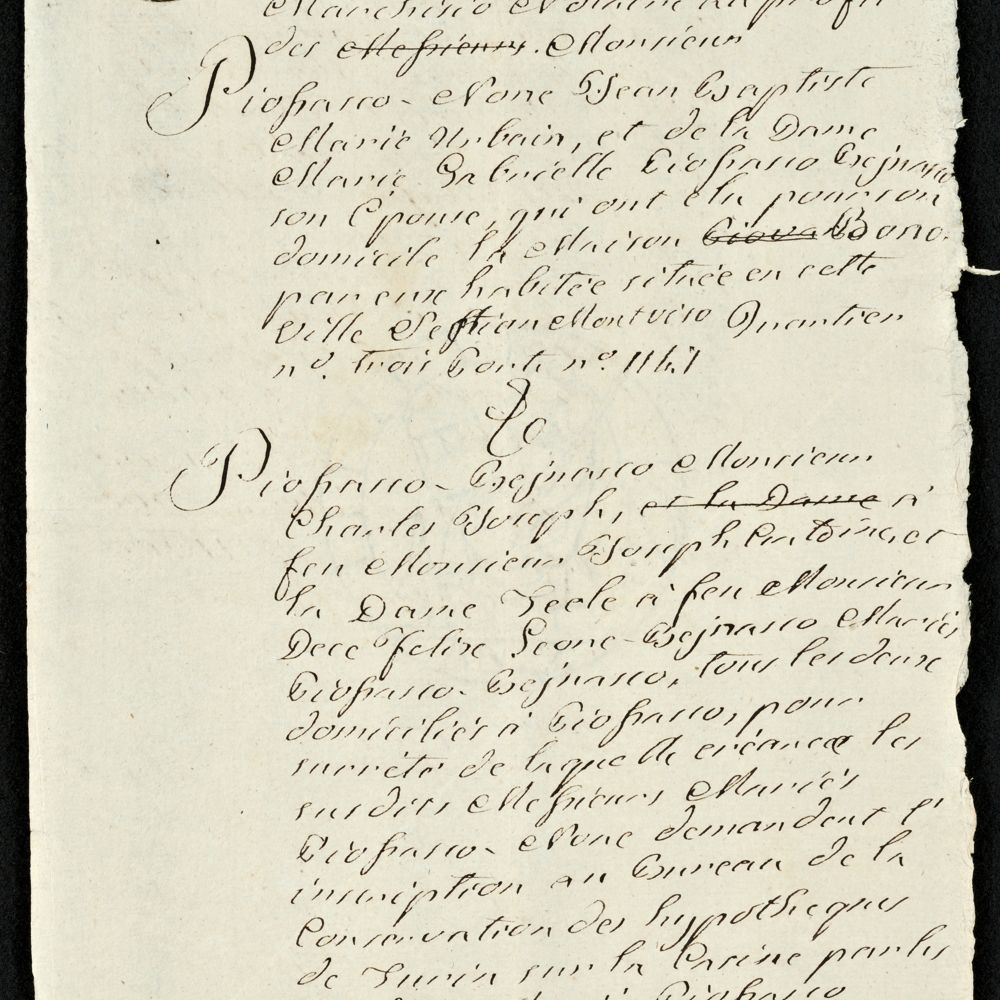 des Messieurs. Monsieur
Piosasco-None Jean Baptiste
Marie Urbain, et de la Dame
Marie Gabrielle Piosasco Bejnasco
son Épouse, qui ont élu pour son
domicile la Maison
par eux habitée située en cette
Ville Section Montviso Quartier
n.º trois Porte n.º
Piosasco-Bejnasco Monsieur
Charles Joseph, et la Dame à
feu Monsieur Joseph Antoine, et
la Dame Tecle à feu Monsieur
Felix Leone-Bejnasco Mariés
Piosasco-Bejnasco, tous les deux
domiciliés à Piosasco, pour
surreté de laquelle créance les
susdits Messieurs Mariés
Piosasco-None demandent l'
inscription au Bureau de la
Conservation des hypotheques
de Turin sur la Cassine par les